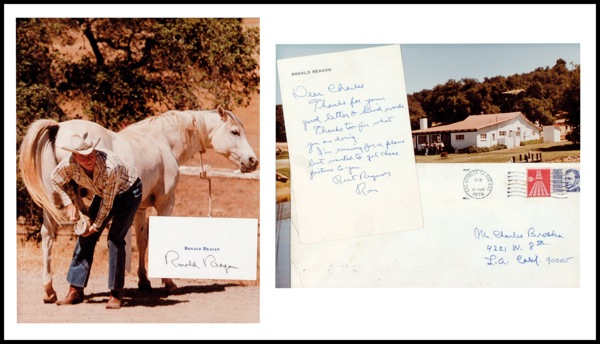 RONALD REAGAN
Ronald Reagan
RONALD REAGAN
Dear Charles
Thanks for your
good letter & kind words
Thanks too for what
you are doing.
I'm running for a plane
but wanted to get these
pictures to you.
Best Regards
Ron
PM
1976
Mr. Charles
4221 W. 8th
L.A. Calif. 90005